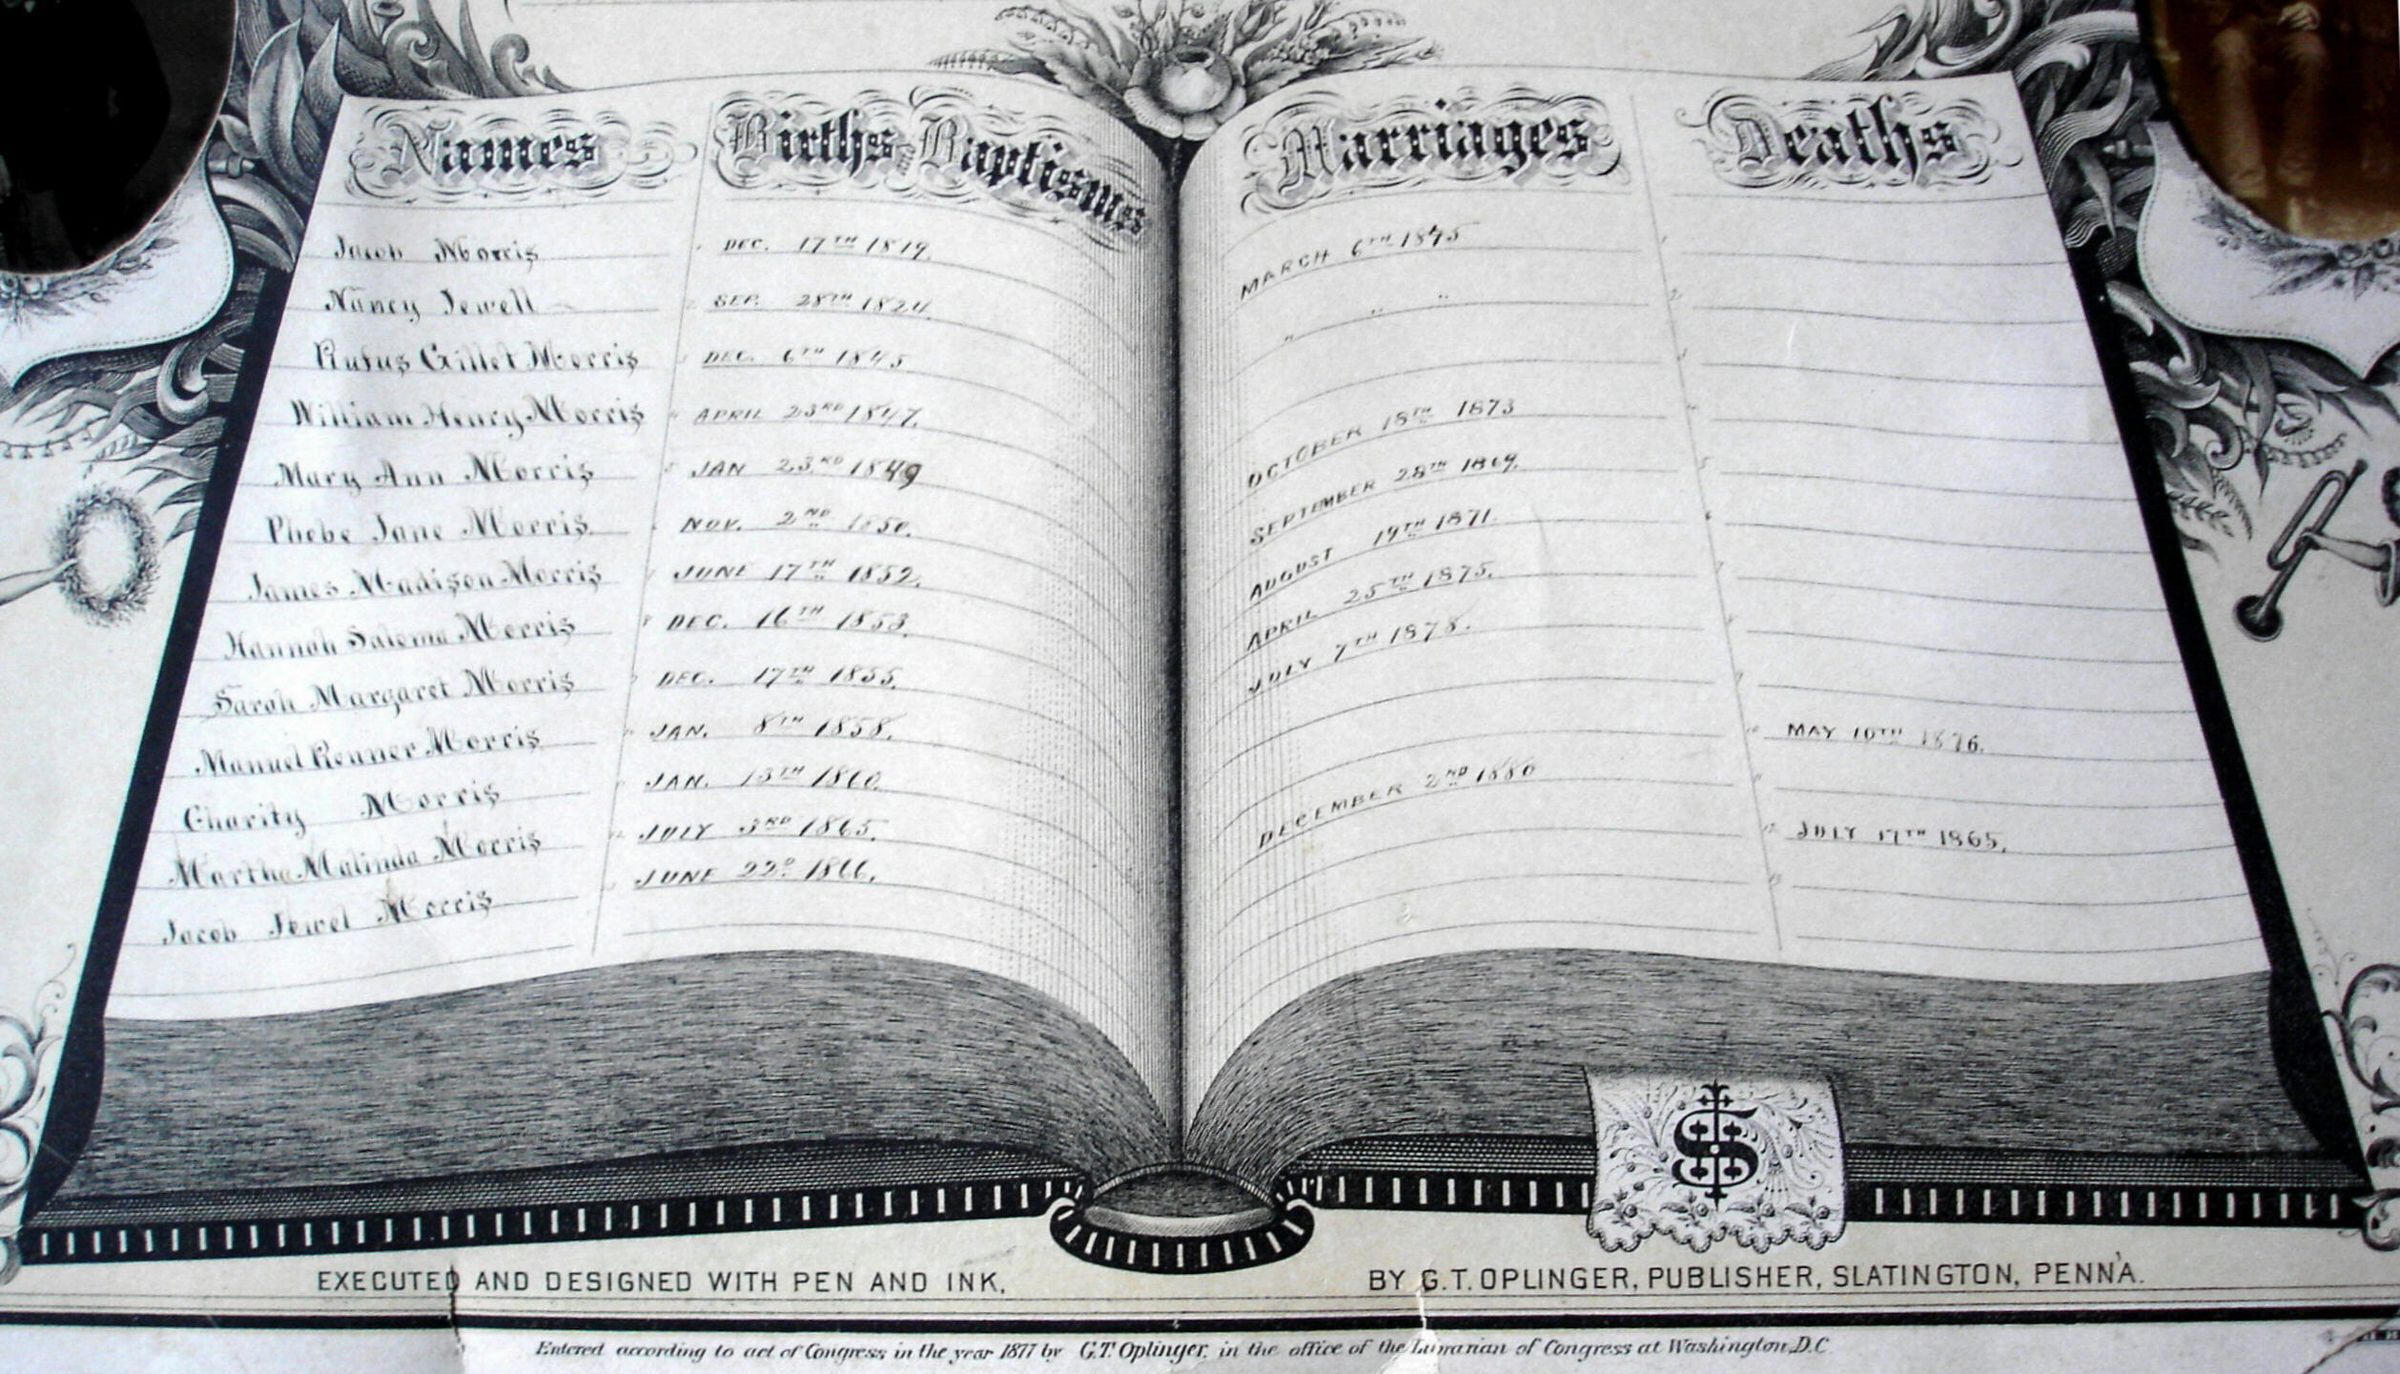 Names
Births and Baptisms
Marriages
Deaths
Jacob Morris
DEC. 17TH 1819.
MARCH 6TH 1845
Nancy Jewell
SEP. 28TH 1824.
" " "
Rufus Gillet Morris
DEC. 6TH 1845
William Henry Morris
APRIL 23RD 1847.
OCTOBER 18TH 1873
Mary Ann Morris
JAN 23RD 1849
SEPTEMBER 28TH 1869.
Phebe Jane Morris.
NOV. 2ND 1850.
AUGUST 19TH 1871.
James Madison Morris
JUNE 17TH 1852.
APRIL 25TH 1875.
Hannah Saloma Morris
DEC. 16TH 1853.
JULY 7TH 1878.
Sarah Margaret Morris
DEC. 17TH 1855.
Manuel Renner Morris
JAN. 8TH 1858.
MAY 10TH 1876.
Charity Morris
JAN. 13TH 1860.
DECEMBER 2ND 1880
Martha Malinda Morris
JULY 3RD 1865.
JULY 17TH 1865.
Jacob Jewel Morris
JUNE 22D 1866.
EXECUTED AND DESIGNED WITH PEN AND INK,
BY G. T. OPLINGER, PUBLISHER, SLATINGTON, PENN'A.
Entered according to act of Congress in the year 1877 by G.T. Oplinger, in the office of the Librarian of Congress at Washington, D.C